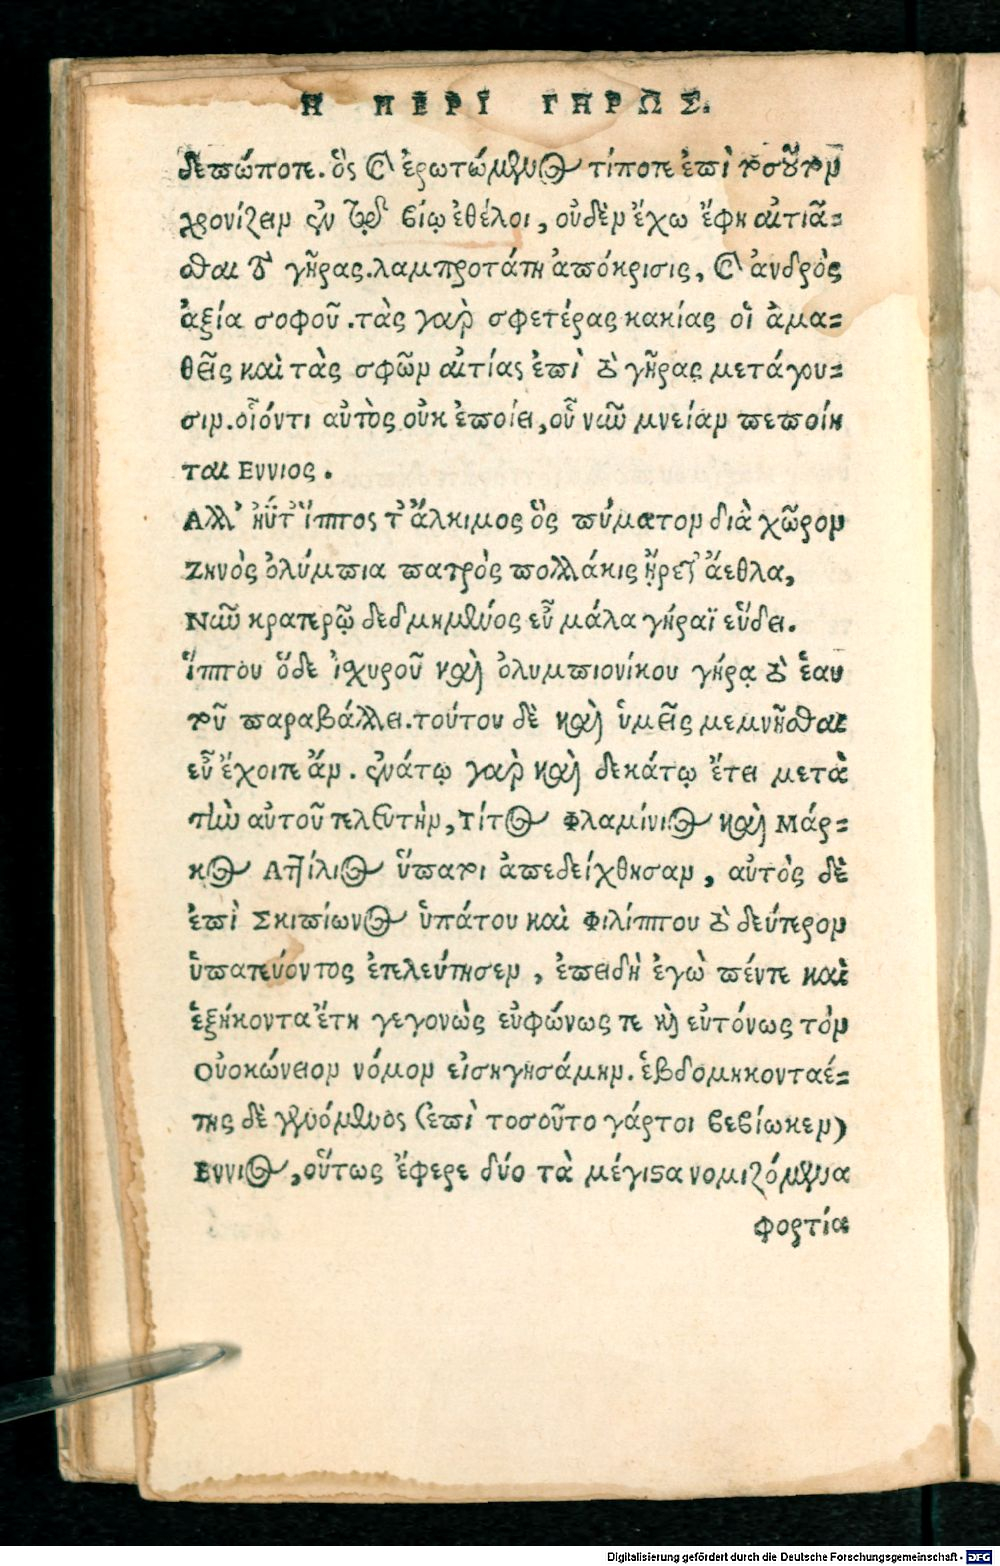 Η ΠΕΡΙ ΓΗΡΩΣ.
δεπώποτε. ὃς καὶ ἐρωτώμενος τίποτε ἐπὶ τοσοῦτον
χρονίζειν ἐν τῷδε βίῳ ἐθέλοι, οὐδὲν ἔχω ἔφη αἰτιᾶ=
σθαι τὸ γῆρας. λαμπροτάτη ἀπόκρισις, καὶ ἀνδρὸς
ἀξία σοφοῦ. τὰς γὰρ σφετέρας κακίας οἱ ἀμα=
θεῖς καὶ τὰς σφῶν αἰτίας ἐπὶ τὸ γῆρας μετάγου=
σιν. οἷόντι αὐτὸς οὐκ ἐποίει, οὗ νῦν μνείαν πεποίη
ται Εννιος.
Αλλ' ηὔτ' ἵππος τ' ἄλκιμος ὃς πύματον διὰ χῶρον
Ζηνὸς ὀλύμπια πατρὸς πολλάκις ᾖρετ' ἄεθλα,
Νῦν κρατερῷ δεδμημένος εὖ μάλα γήραϊ εὕδει.
ἵππου ὅδε ἰσχυροῦ καὶ ὀλυμπιονίκου γήρᾳ τὸ ἑαυ
τοῦ παραβάλλει. τούτου δὲ καὶ ὑμεῖς μεμνῆσθαι
εὖ ἔχοιτε ἄν. ἐνάτῳ γὰρ καὶ δεκάτῳ ἔτει μετὰ
τὴν αὐτοῦ τελευτὴν, Τίτος Φλαμίνιος καὶ Μάρ=
κος Ατtίλιος ὕπατοι ἀπεδείχθησαν, αὐτὸς δὲ
ἐπὶ Σκιπίωνος ὑπάτου καὶ Φιλίππου τὸ δεύτερον
ὑπατεύοντος ἐτελεύτησεν, ἐπειδὴ ἐγὼ πέντε καὶ
ἑξήκοντα ἔτη γεγονὼς εὐφώνως τε καὶ εὐτόνως τὸν
Ουοκώνειον νόμον εἰσηγησάμην. ἑβδομηκονταέ=
της δὲ γενόμενος (επὶ τοσοῦτο γάρτοι βεβίωκεν)
Εννιος, οὕτως ἔφερε δύο τὰ μέγιστα νομιζόμενα
φορτία
Digitalisierung gefördert durch die Deutsche Forschungsgemeinschaft - DFG